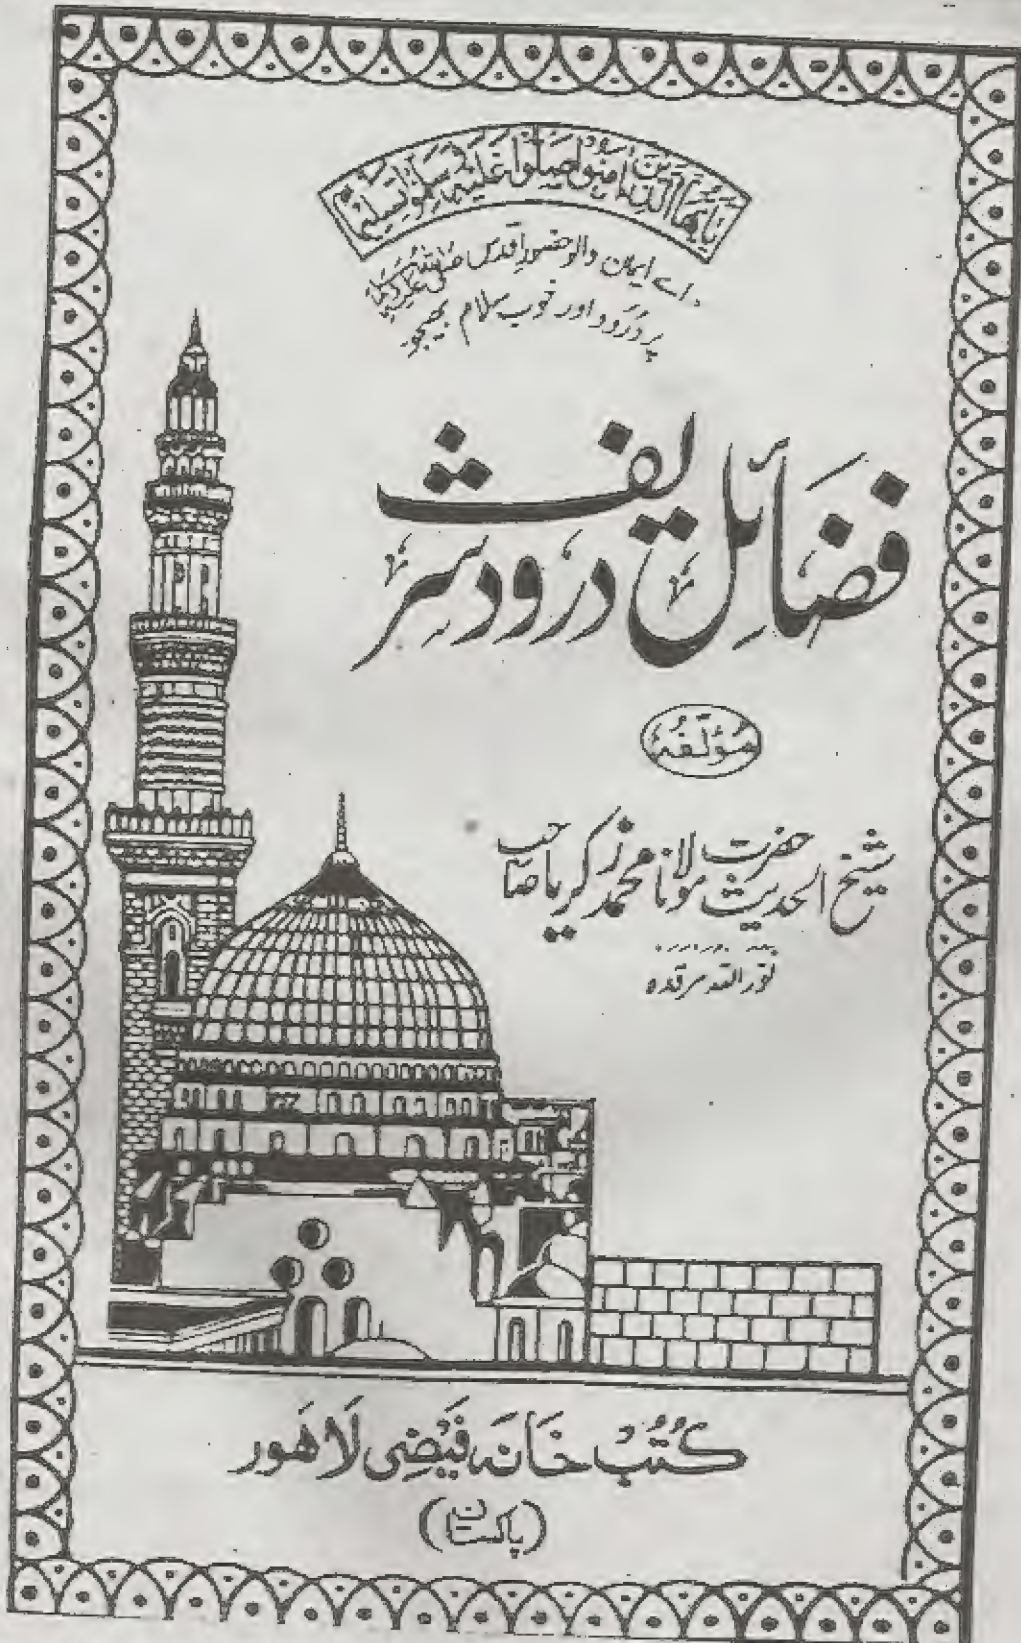 يٰۤاَيُّهَا الَّذِيْنَ اٰمَنُوْا صَلُّوْا عَلَيْهِ وَسَلِّمُوْا تَسْلِيْمًا
اے ایمان والو حضور اقدس صلی اللہ علیہ وسلم
پر درود اور خوب سلام بھیجو
فضائل درود شریف
مؤلفہ
شیخ الحدیث حضرت مولانا محمد زکریا صاحب
نور اللہ مرقدہ
کُتُبْ خَانَہ فَیْضِی لَاهَور
(پاکستان)